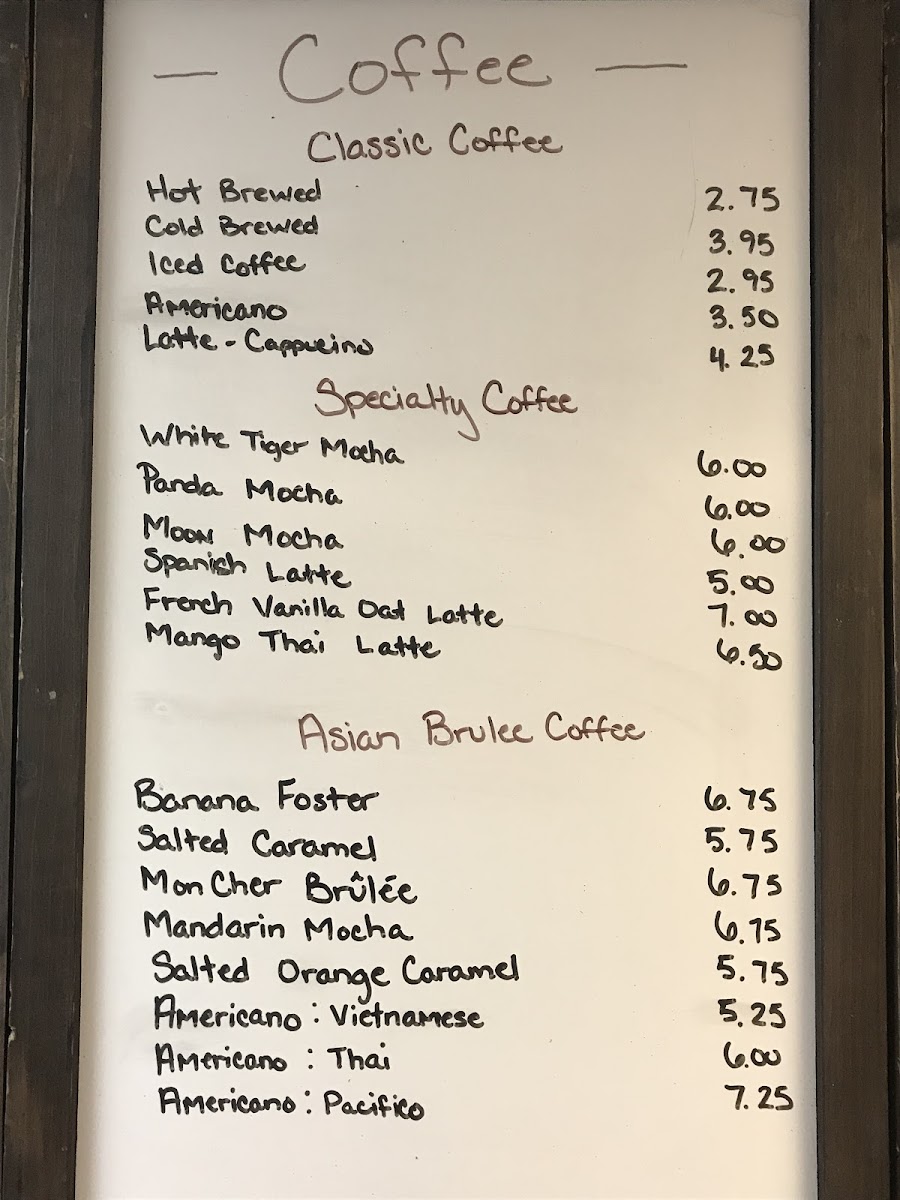 — Coffee —
Classic Coffee
Hot Brewed 2.75
Cold Brewed 3.95
Iced Coffee 2.95
Americano 3.50
Latte - Cappucino 4.25
Specialty Coffee
White Tiger Mocha 6.00
Panda Mocha 6.00
Moon Mocha 6.00
Spanish Latte 5.00
French Vanilla Oat Latte 7.00
Mango Thai Latte 6.50
Asian Brulee Coffee
Banana Foster 6.75
Salted Caramel 5.75
Mon Cher Brûlée 6.75
Mandarin Mocha 6.75
Salted Orange Caramel 5.75
Americano : Vietnamese 5.25
Americano : Thai 6.00
Americano : Pacifico 7.25